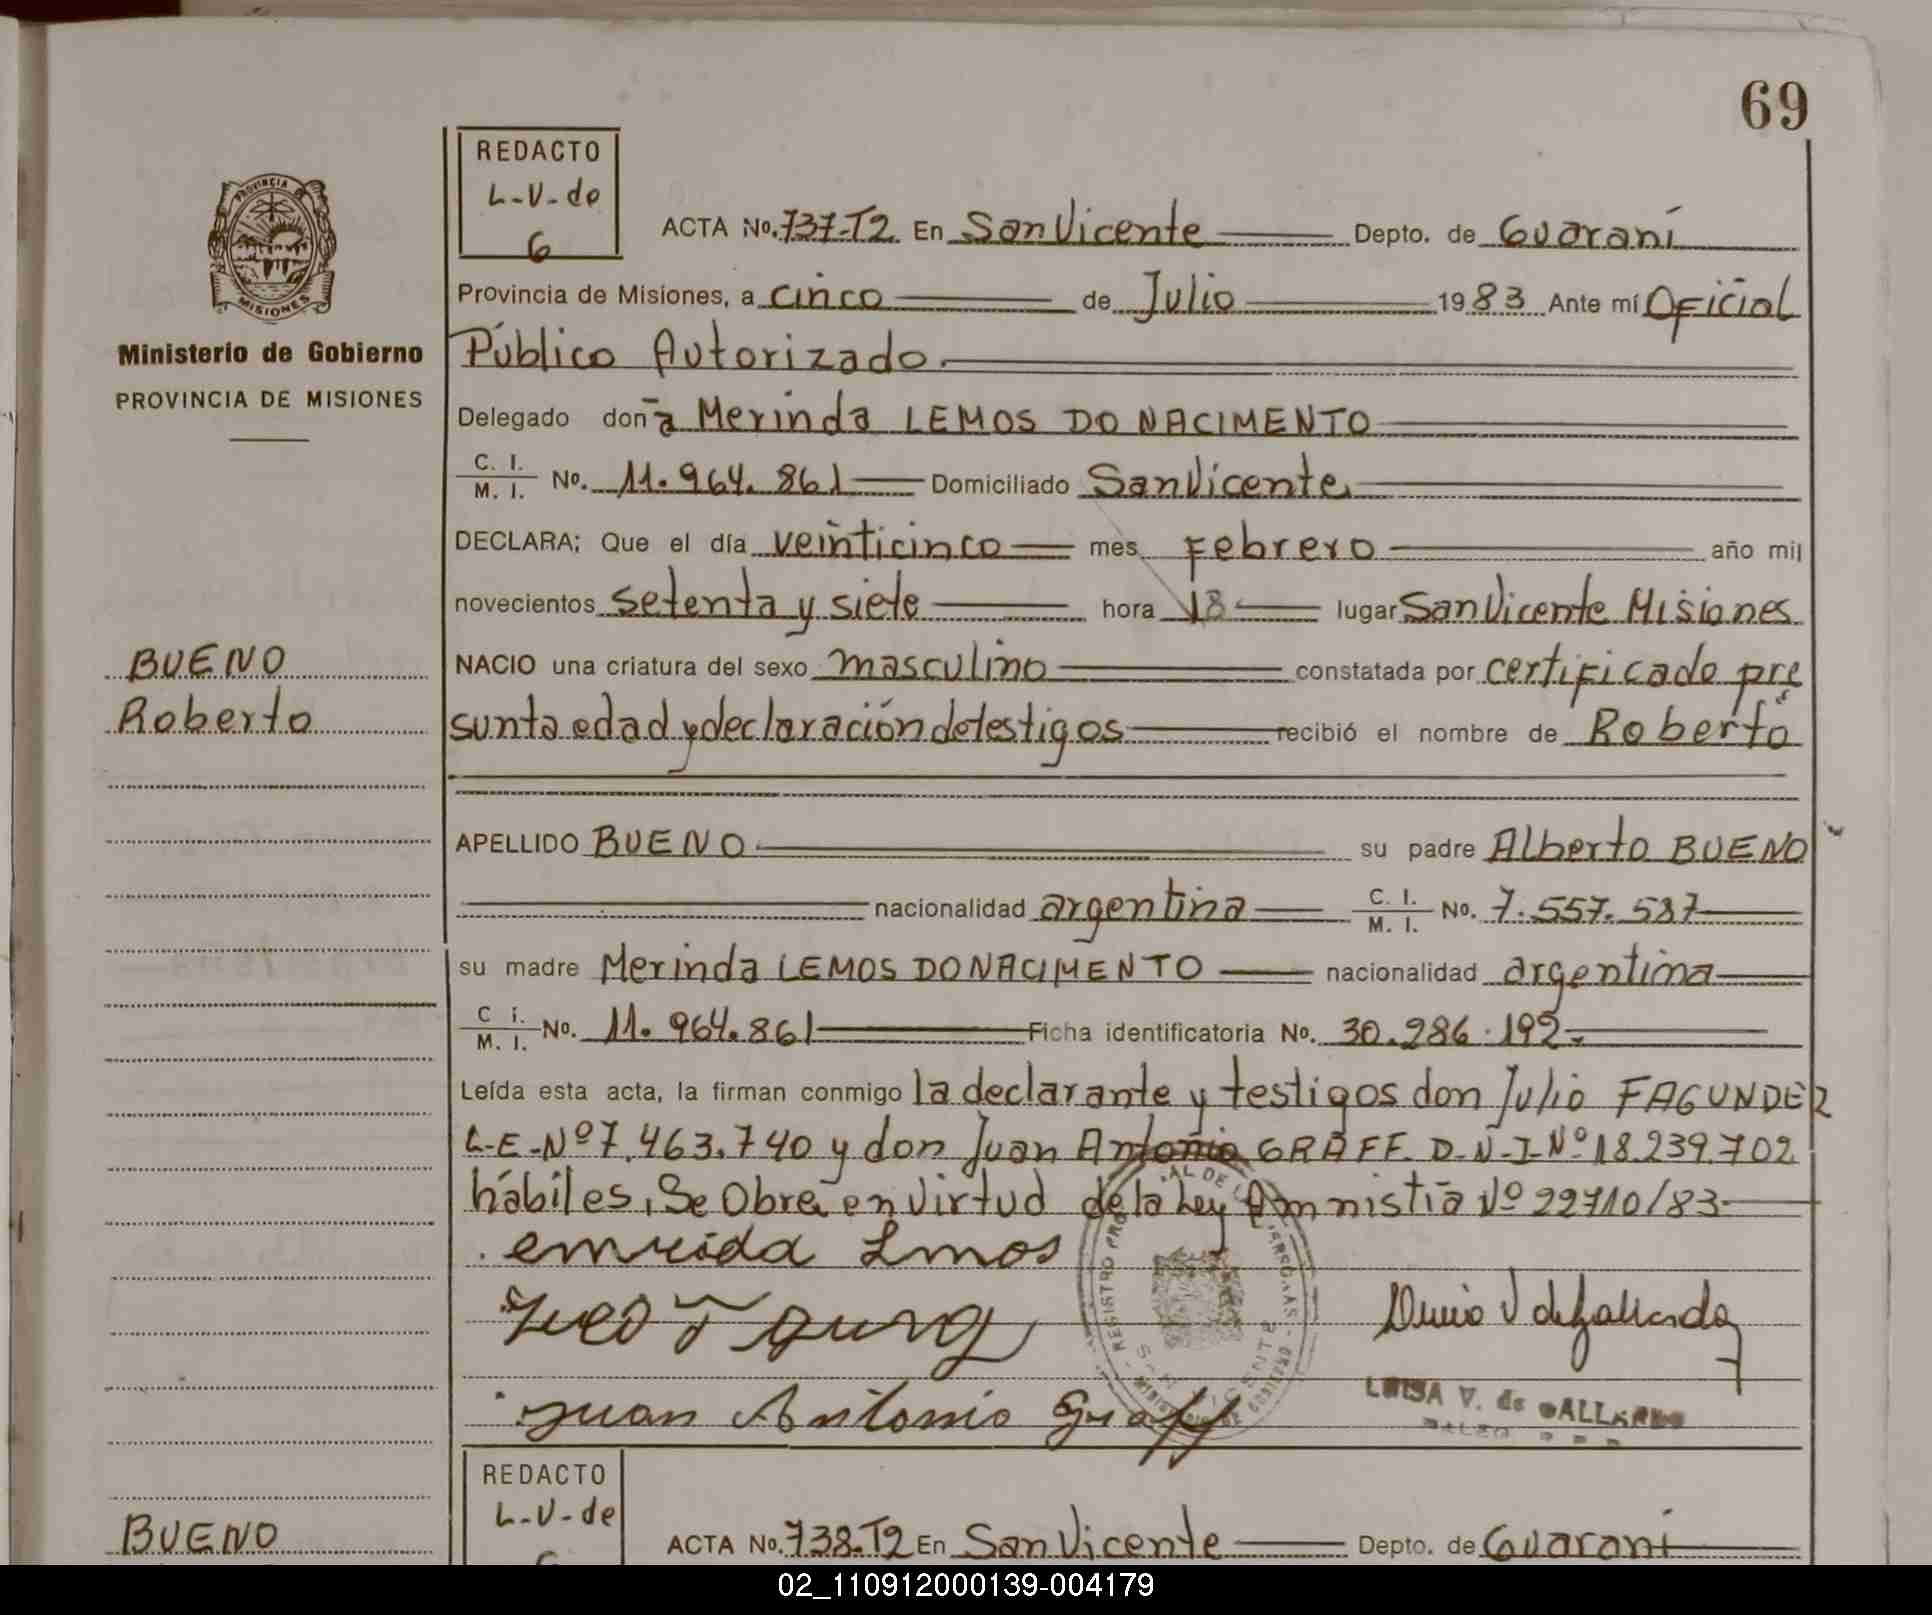 69
REDACTO
L-V-de
6
PROVINCIA DE
MISIONES
Ministerio de Gobierno
PROVINCIA DE MISIONES
ACTA No. 737-T2 En San Vicente Depto. de Guaraní
Provincia de Misiones, a cinco de Julio 1983 Ante mí Oficial
Público Autorizado.
Delegado donña Merinda LEMOS DO NACIMENTO
C. I. / M. I. No. 11.964.861 Domiciliado San Vicente
DECLARA; Que el día veinticinco mes Febrero año mil
novecientos setenta y siete hora 18 lugar San Vicente Misiones
BUENO
Roberto
NACIO una criatura del sexo masculino constatada por certificado pre
sunta edad y declaración de testigos recibió el nombre de Roberto
APELLIDO BUENO su padre Alberto BUENO
nacionalidad argentina C. I. / M. I. No. 7.557.587
su madre Merinda LEMOS DO NACIMENTO nacionalidad argentina
C i. / M. I. No. 11.964.861 Ficha identificatoria No. 30.286.192.
Leída esta acta, la firman conmigo la declarante y testigos don Julio FAGUNDEZ
L-E-Nº 7.463.740 y don Juan Antonio GRAFF D-N-I-Nº 18.239.702
hábiles, Se Obra en virtud de la Ley Amnistia Nº 22710/83
emrida Lmos
Juan Antonio Graff
LUISA V. de GALLARDO
REDACTO
L-V-de
BUENO
ACTA No. 738-T2 En San Vicente Depto. de Guaraní
02_110912000139-004179